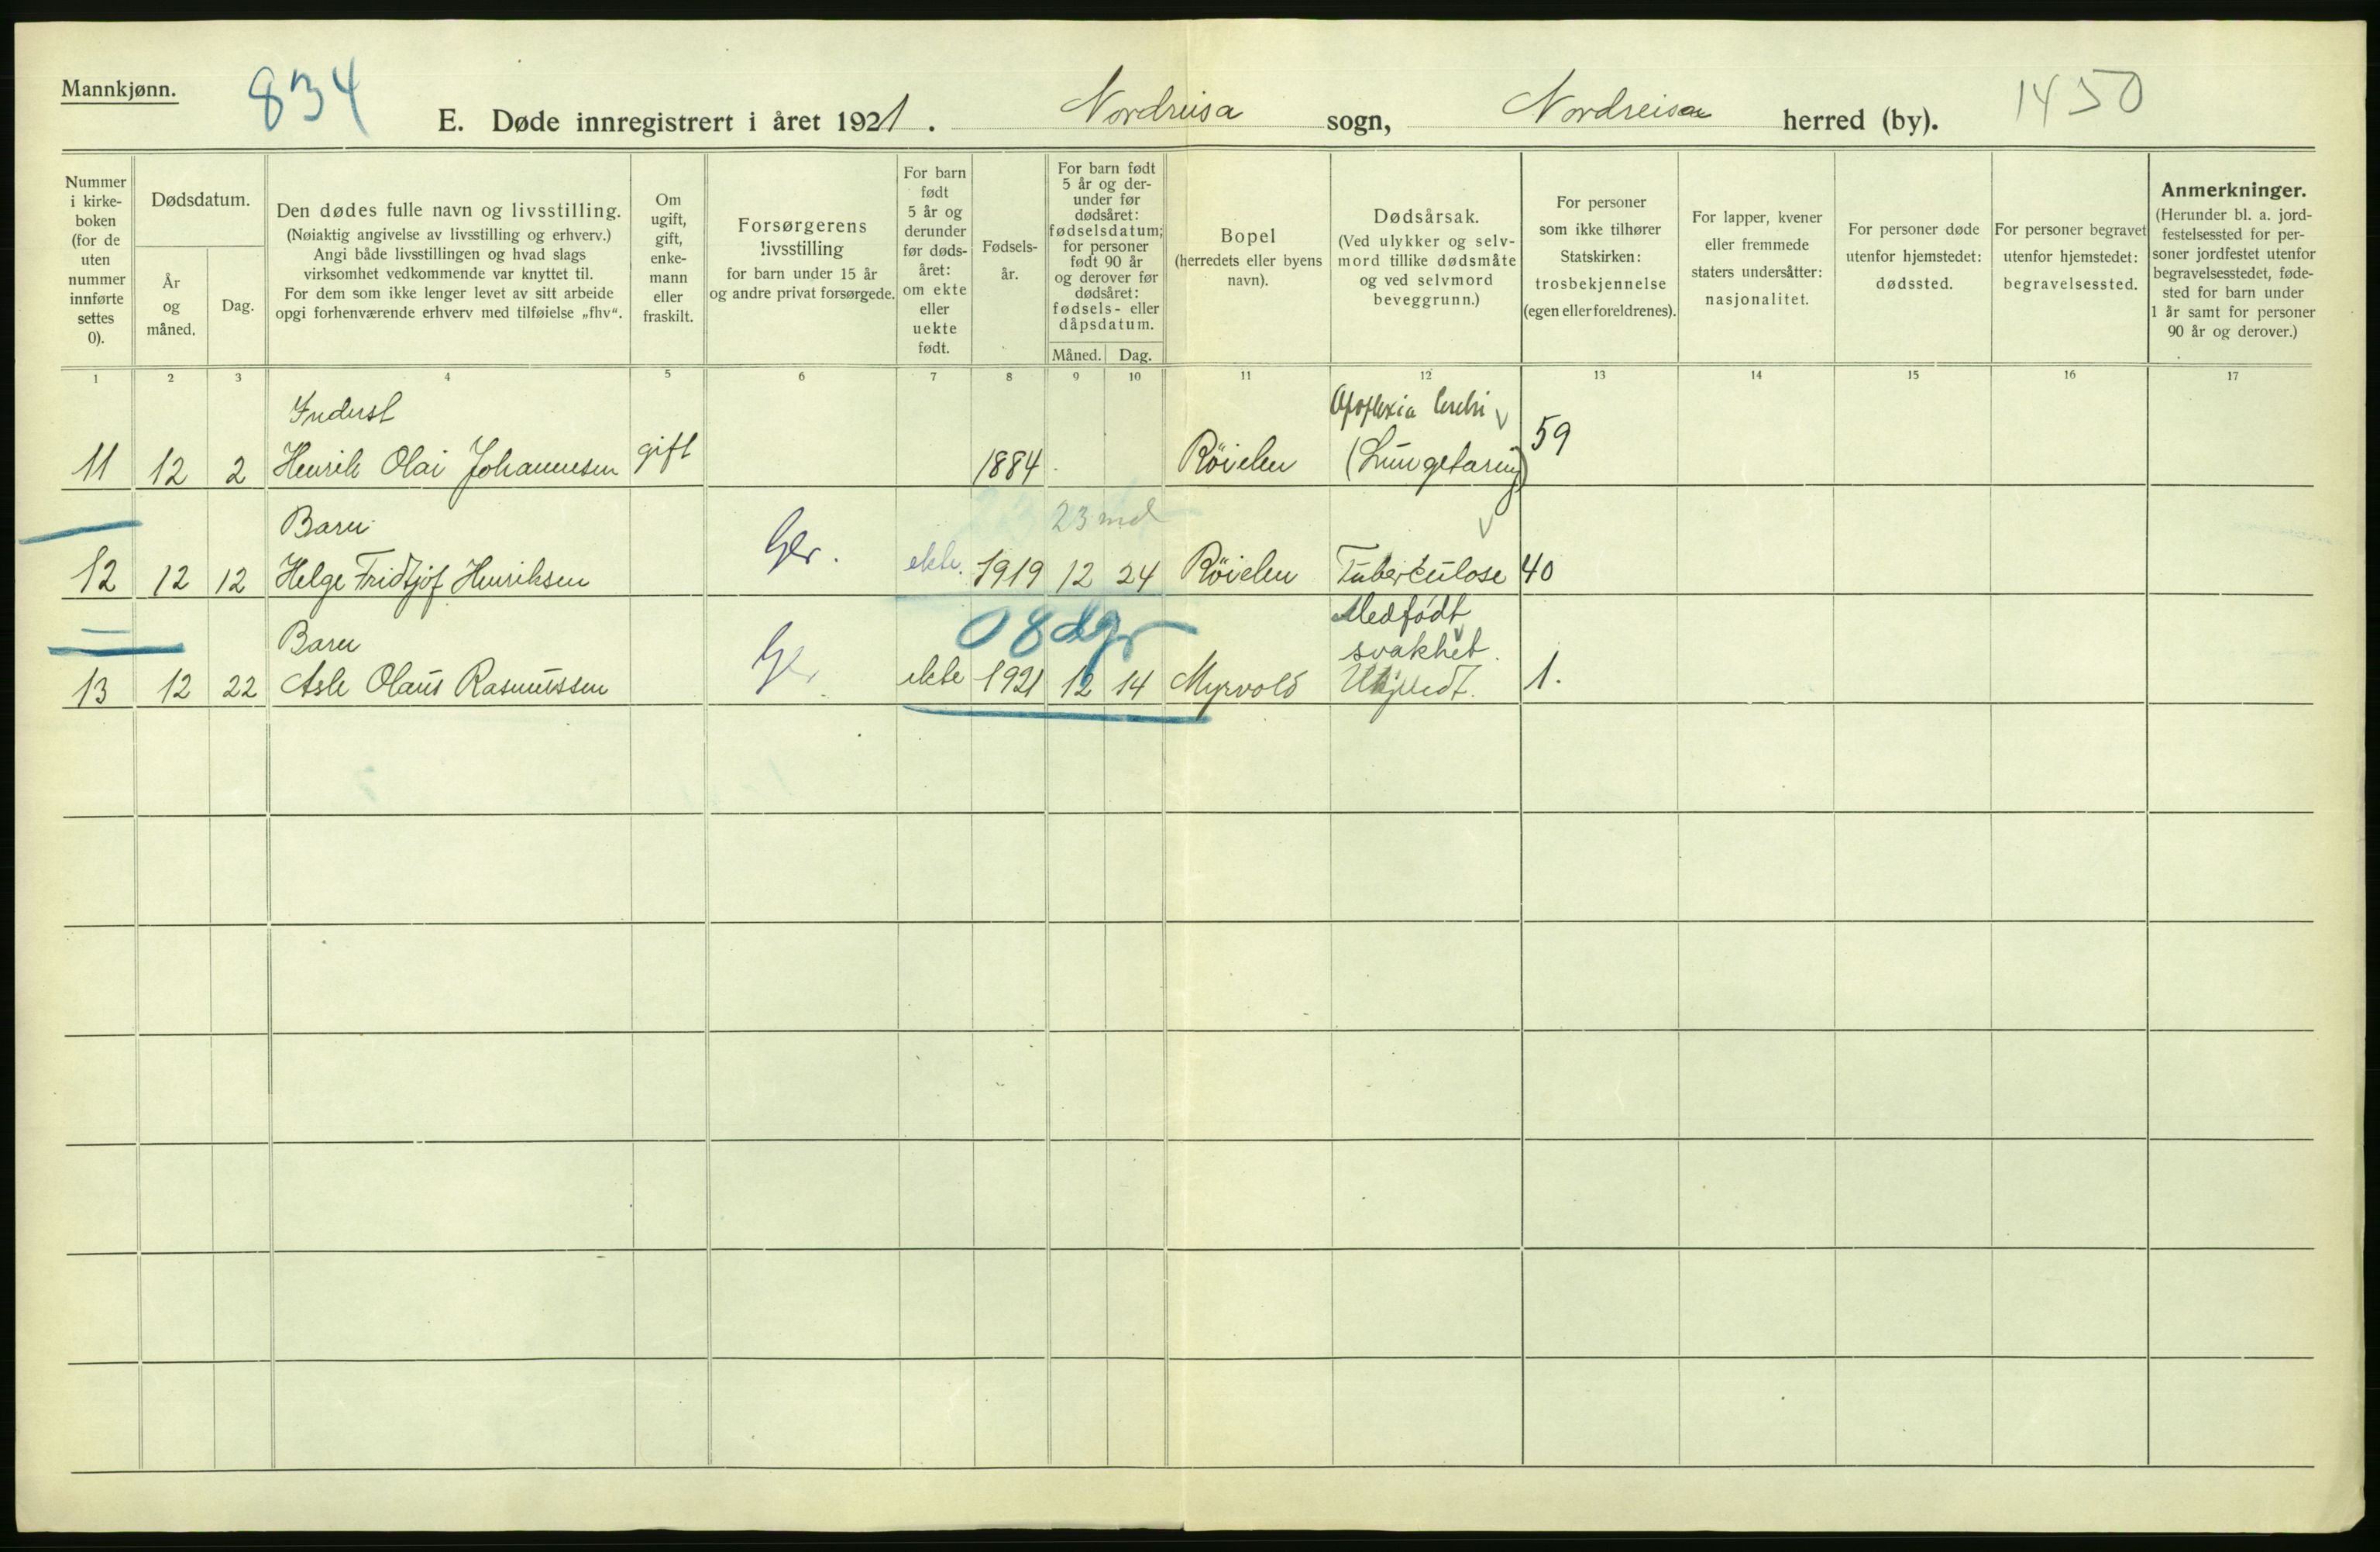 Mannkjønn.
834
E. Døde innregistrert i året 1921. Nordreisa sogn, Nordreisa herred (by).
1450
Nummer i kirke-
boken
(for de
uten
nummer
innførte
settes
0).
Dødsdatum.
År
og
måned.
Dag.
Den dødes fulle navn og livsstilling.
(Nøiaktig angivelse av livsstilling og erhverv.)
Angi både livsstillingen og hvad slags
virksomhet vedkommende var knyttet til.
For dem som ikke lenger levet av sitt arbeide
opgi forhenværende erhverv med tilføielse „fhv“.
Om
ugift,
gift,
enke-
mann
eller
fraskilt.
Forsørgerens
livsstilling
for barn under 15 år
og andre privat forsørgede.
For barn
født
5 år og
derunder
før døds-
året:
om ekte
eller
uekte
født.
Fødsels-
år.
For barn født
5 år og der-
under før
dødsåret:
fødselsdatum;
for personer
født 90 år
og derover før
dødsåret:
fødsels- eller
dåpsdatum.
Måned. Dag.
Bopel
(herredets eller byens
navn).
Dødsårsak.
(Ved ulykker og selv-
mord tillike dødsmåte
og ved selvmord
beveggrunn.)
For personer
som ikke tilhører
Statskirken:
trosbekjennelse
(egen eller foreldrenes).
For lapper, kvener
eller fremmede
staters undersåtter:
nasjonalitet.
For personer døde
utenfor hjemstedet:
dødssted.
For personer begravet
utenfor hjemstedet:
begravelsessted.
Anmerkninger.
(Herunder bl. a. jord-
festelsessted for per-
soner jordfestet utenfor
begravelsesstedet, føde-
sted for barn under
1 år samt for personer
90 år og derover.)
1 2 3 4 5 6 7 8 9 10 11 12 13 14 15 16 17
Inderst
Apoplexia Cerebri
11 12 2 Henrik Olai Johannesen gift 1884 Røielen (Lungetæring) 59
Barn
23 md
12 12 12 Helge Fridtjof Henriksen ekte. 1919 12 24 Røielen Tuberkulose 40
08 dgr
Medfødt
Barn
svakhet.
13 12 22 Asle Olaus Rasmussen ekte 1921 12 14 Myrvold 1.